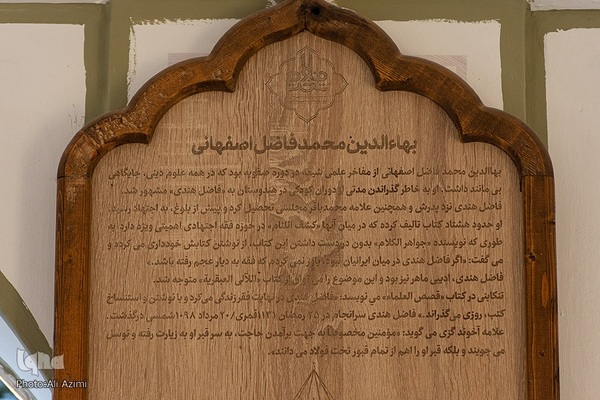 بهاءالدین محمد فاضل اصفهانی
بهاالدین محمد فاضل اصفهانی از مفاخر علمی شیعه در دوره صفویه بود که در همه علوم دینی، جایگاهی
بی مانند داشت. او به خاطر گذراندن مدتی از دوران کودکی در هندوستان به «فاضل هندی» مشهور شد.
فاضل هندی نزد پدرش و همچنین علامه محمدباقر مجلسی تحصیل کرد و پیش از بلوغ، به اجتهاد رسید.
او حدود هشتاد کتاب تالیف کرده که در میان آنها «کشف اللثام» در حوزه فقه اجتهادی اهمیتی ویژه دارد. به
طوری که نویسنده «جواهر الکلام» بدون در دست داشتن این کتاب، از نوشتن کتابش خودداری می کرده و
می گفت: «اگر فاضل هندی در میان ایرانیان نبود، باور نمی کردم که فقه به دیار عجم رفته باشد.»
فاضل هندی، ادیبی ماهر نیز بود و این موضوع را می توان از کتاب «اللآلی العبقریة» متوجه شد.
تنکابنی در کتاب «قصص العلماء» می نویسد: «فاضل هندی در نهایت فقر زندگی می کرد و با نوشتن و استنساخ
کتب، روزی می گذراند.» فاضل هندی سرانجام در ۲۵ رمضان ۱۱۳۱ قمری/۲۰ مرداد ۱۰۹۸ شمسی درگذشت.
علامه آخوند گزی می گوید: «مؤمنین مخصوصا به جهت برآمدن حاجت، به سر قبر او به زیارت رفته و توسل
می جویند و بلکه قبر او را اهم از تمام قبور تخت فولاد می دانند.»
iqna
Photo:Ali Azimi